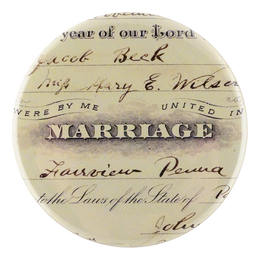 year of our Lord
Jacob Beck
Miss Mary E. Wilson
WERE BY ME UNITED IN
MARRIAGE
Fairview Penna
to the Laws of the State of
John